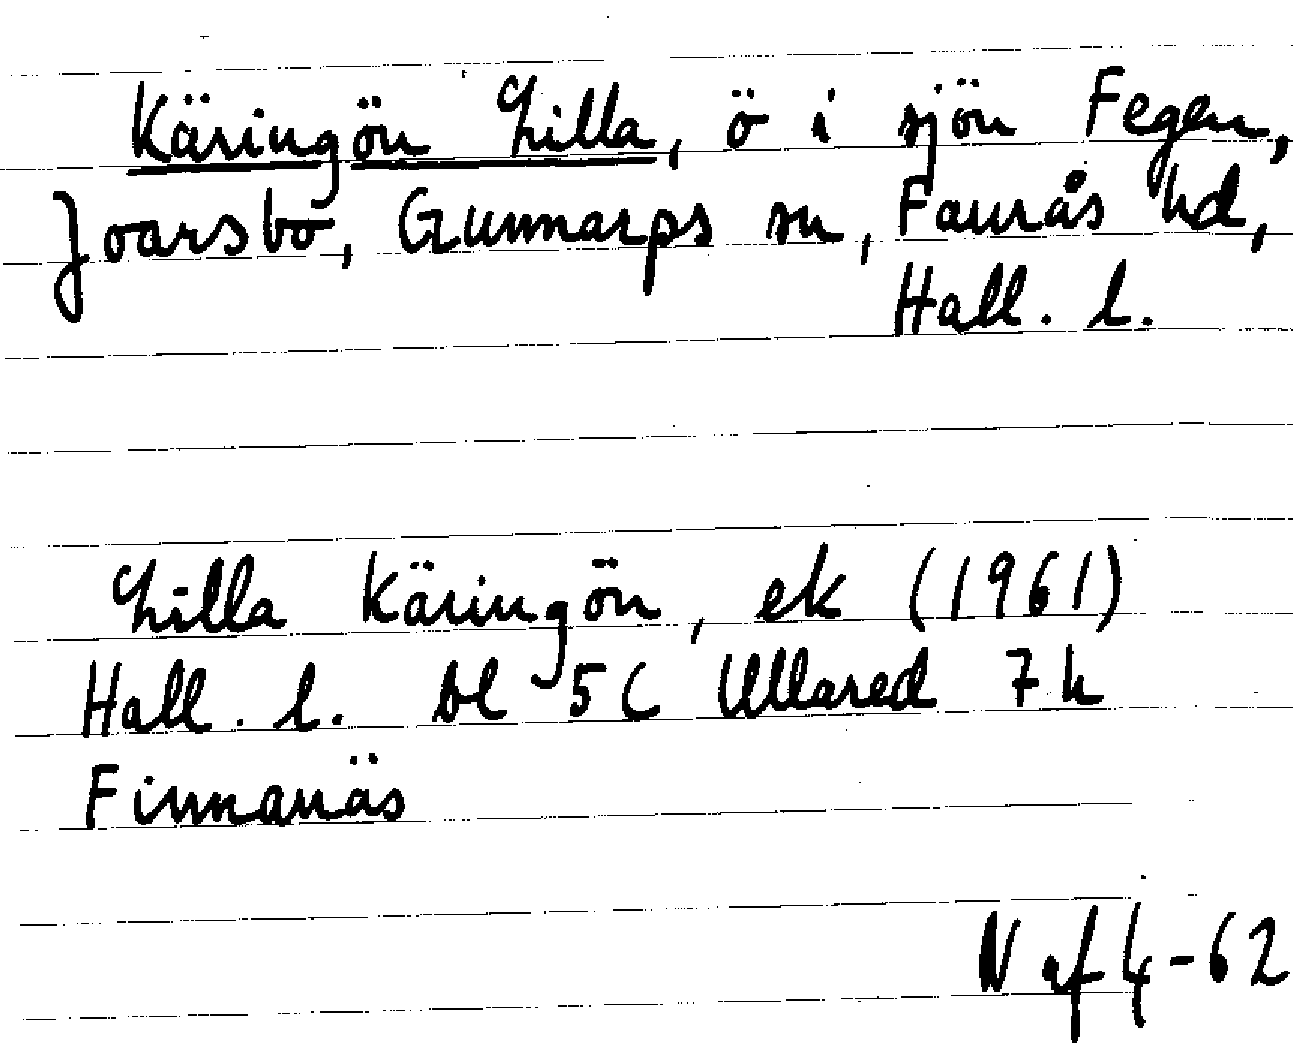 Käringön Lilla, ö i sjön Fegen,
Joarsbo, Gunnarps sn, Faurås hd,
Hall. l.
Lilla Käringön, ek (1961)
Hall. l. bl 5C Ullared 7h
Finnanäs
N af 4-62